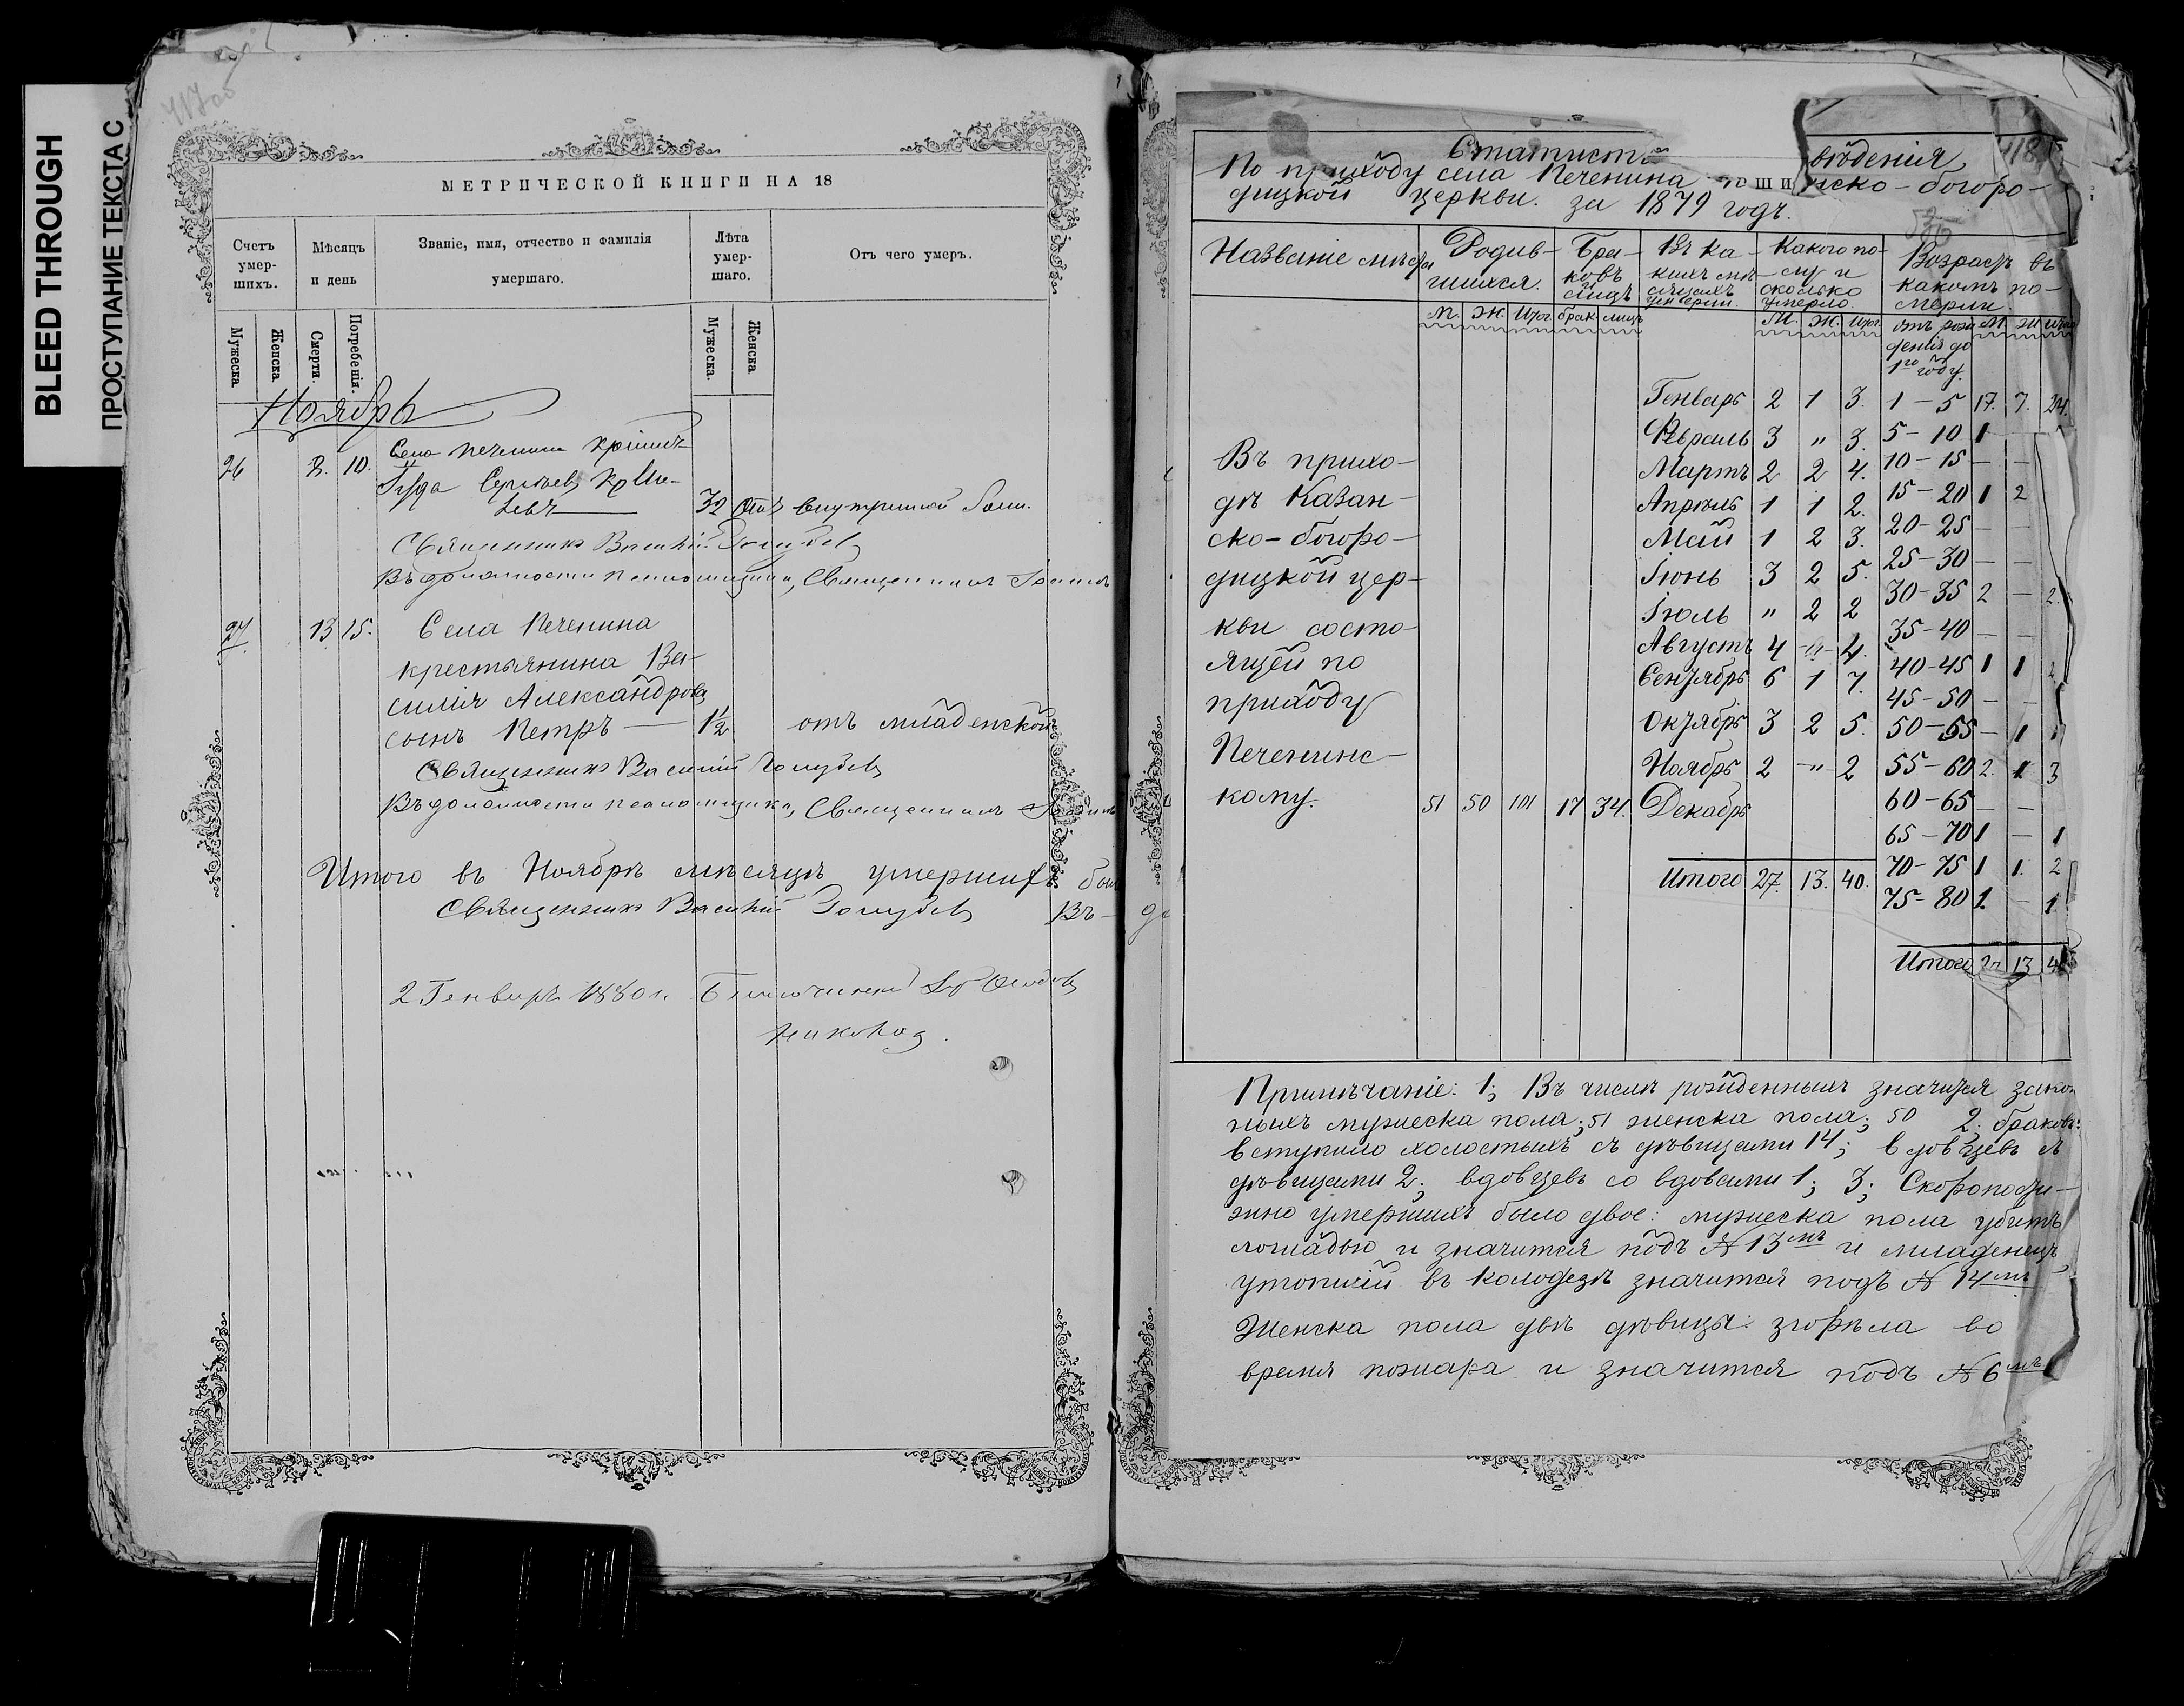 BLEED THROUGH
ПРОСТУПАНИЕ ТЕКСТА С
417об
МЕТРИЧЕСКОЙ КНИГИ НА 18
Счетъ умер-шихъ.
Мѣсяцъ и день
Званіе, имя, отчество и фамилія умершаго.
Лѣта умер-шаго.
Отъ чего умеръ.
Мужеска
Женска
Смерти.
Погребенія.
Мужеска.
Женска.
Ноябрь
26 8. 10. Села Печенина
32 Отъ внутренней
Священникъ Василій Голубев
Въ должности псаломщика, Священникъ
27. 13 15. Села Печенина
крестьянина Ва-
силія Александрова
сынъ Петръ — 1½ отъ младенской
Священникъ Василій Голубев
Въ должности псаломщика, Священникъ
Итого въ Ноябрѣ мѣсяцѣ умершихъ
Священникъ Василій Голубев Въ
2 Генваря 1880 г.
418
Статист вѣдения
По приходу села Печенина нско-богоро-
дицкой церкви. за 1879 годъ.
Название мѣста
Родив-шихся.
Бра-ковъ и лицъ
Въ ка-кихъ мѣ-сяцахъ умерли.
Какого по-лу и сколько умерло.
Возрастъ въ какомъ по-мерли.
М. Ж. Итог. брак. лицъ М. Ж. Итог. отъ рож М Ж
дения до
1го году.
Генварь 2 1 3. 1 - 5 17. 7. 24.
Февраль 3 " 3. 5 - 10 1
Мартъ 2 2 4. 10 - 15 — —
Апрѣль 1 1 2. 15 - 20 1 2
Май 1 2 3. 20 - 25 — —
Іюнь 3 2 5. 25 - 30 — —
Іюль " 2 2 30 - 35 2 — 2.
Августъ 4 -"- 4. 35 - 40 — —
Сентябрь 6 1 7. 40 - 45 1 1 2
45 - 50 — —
Октябрь 3 2 5. 50 - 55 — 1 1
Ноябрь 2 -"- 2 55 - 60 2. 1 3
Декабрь 60 - 65 — —
65 - 70 1 — 1
Итого 27. 13. 40. 70 - 75 1 1. 2
75 - 80 1. — 1
Итого 27 13 40
Въ прихо-
дѣ Казан-
ско-богоро-
дицкой цер-
кви состо-
ящей по
приходу
Печенинс-
кому. 51 50 101 17 34.
Примѣчаніе: 1; Въ числѣ рожденныхъ значится закон
ныхъ мужеска пола; 51 женска пола; 50 2; браковъ:
вступило холостыхъ съ дѣвицами 14; вдовцевъ съ
дѣвицами 2; вдовцевъ со вдовами 1; 3; Скоропости-
жно умершихъ было двое: мужеска пола убитъ
лошадью и значится подъ № 13мъ и младенецъ
утопшій въ колодезѣ значится подъ № 14мъ
Женска пола двѣ дѣвицы: згорѣла во
время пожара и значится подъ № 6мъ